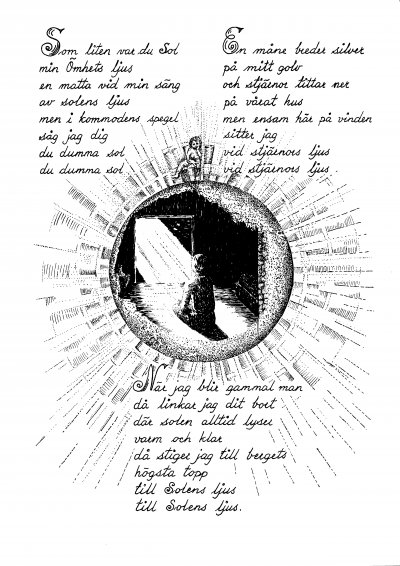 Som liten var du Sol
min Ömhets ljus
en matta vid min säng
av solens ljus
men i kommodens spegel
såg jag dig
du dumma sol
du dumma sol
En måne breder silver
på mitt golv
och stjärnor tittar ner
på vårat hus
men ensam här på vinden
sitter jag
vid stjärnors ljus
vid stjärnors ljus.
När jag blir gammal man
då linkar jag dit bort
där solen alltid lyser
varm och klar
då stiger jag till bergets
högsta topp
till Solens ljus
till Solens ljus.